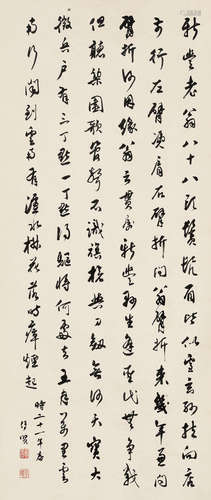 新豐老翁八十八頭鬢皆似雪玄孫扶向店
前行左臂憑肩右臂折問翁臂折來幾年兼問
臂折何因緣翁云貫屬新豐縣生逢聖代無爭戰
但聽梨園歌管聲不識旗槍與刀劍無何天寶大
徵兵戶有三丁點一丁點得驅將何處去五月萬里雲
南行聞到雲南有瀘水椒花落時瘴煙起
時二十一年春